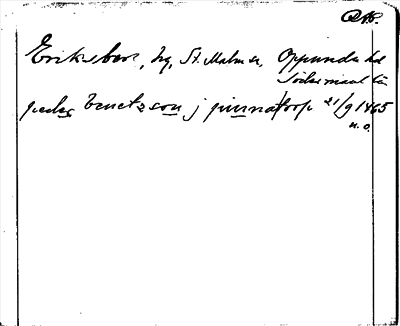 Eriksberg, hg, St. Malm sn, Oppunda hd
Södermanl. län
pedher benctzson j pinnatorp 21/9 1465
u. o.